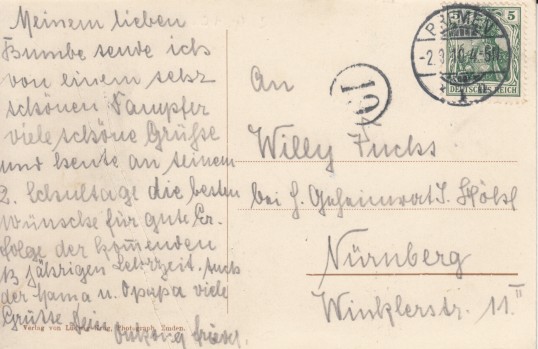 Meinem lieben
Bumbe sende ich
von einem sehr
schönen Dampfer
viele schöne Grüße
und heute an seinem
2. Schultage die besten
Wünsche für gute Er-
folge der kommenden
13 jährigen Lehrzeit. Auch
der Mama u. Opapa viele
Grüße Dein
Verlag von Photograph, Emden.
An
Willy Fuchs
bei H. Geheimrat J.
Nürnberg
Winklerstr. 11 II
19
5
DEUTSCHES REICH